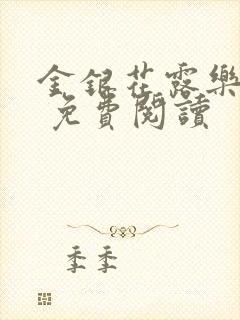 金銀花露樂
免費閱讀
季季